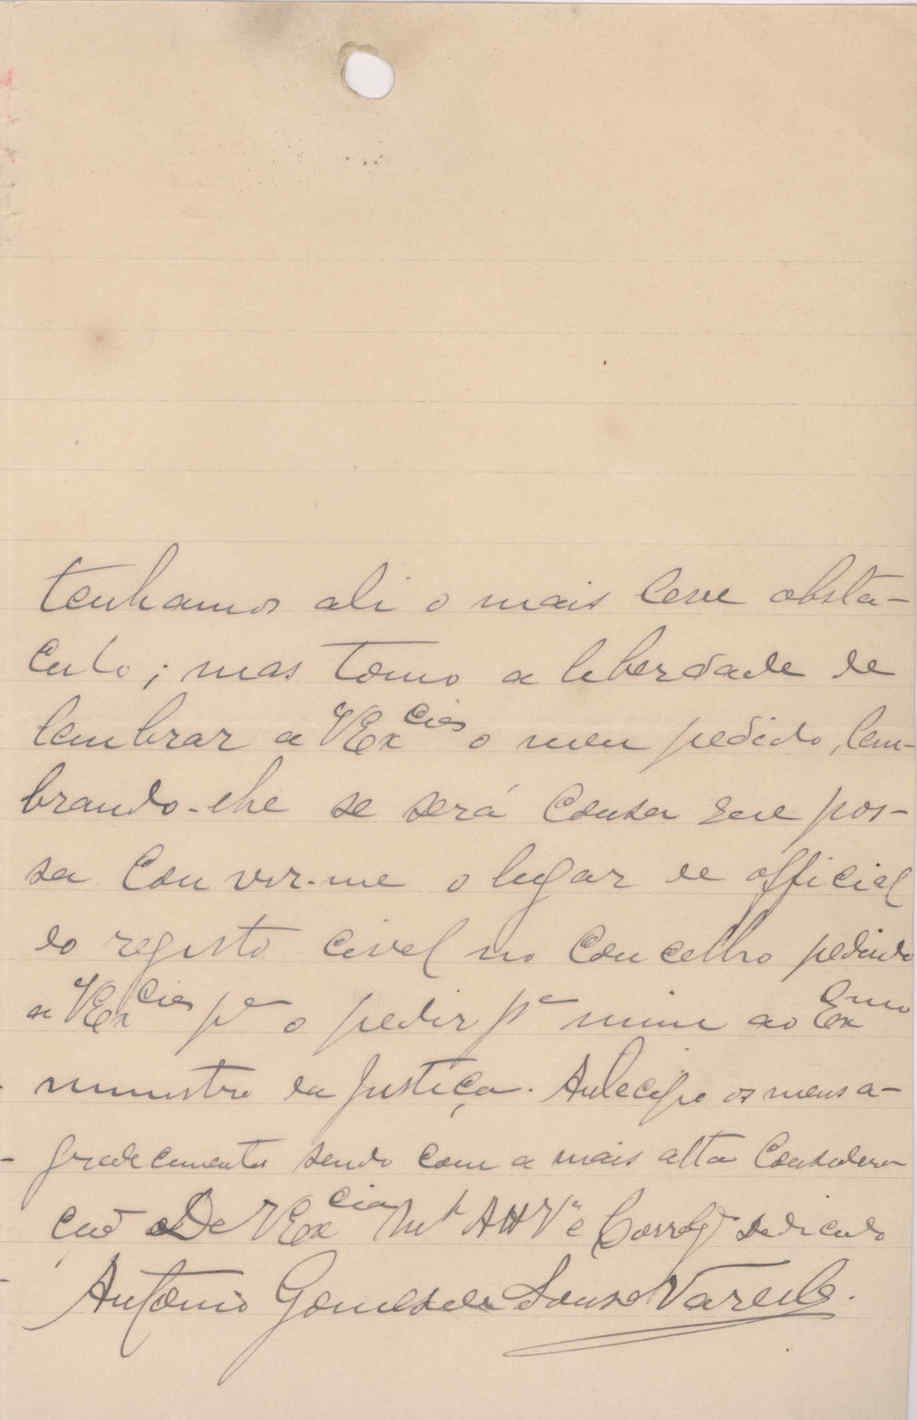 tenhamos ali o mais leve obsta-
culo; mas tomo a liberdade de
lembrar a VExcias o meu pedido, lem-
brando-lhe se será cousa que pos-
sa convir-me o lugar de official
do registo civel no concelho pedindo
a VExcias pa o pedir pa mim ao Exmo
ministro da Justiça. Antecipo os meus a-
gradecimentos sendo com a mais alta considera-
ção De VExcias Mto Atto Vor e Correlgo dedicado
Antonio Gomes de Sousa Varella.